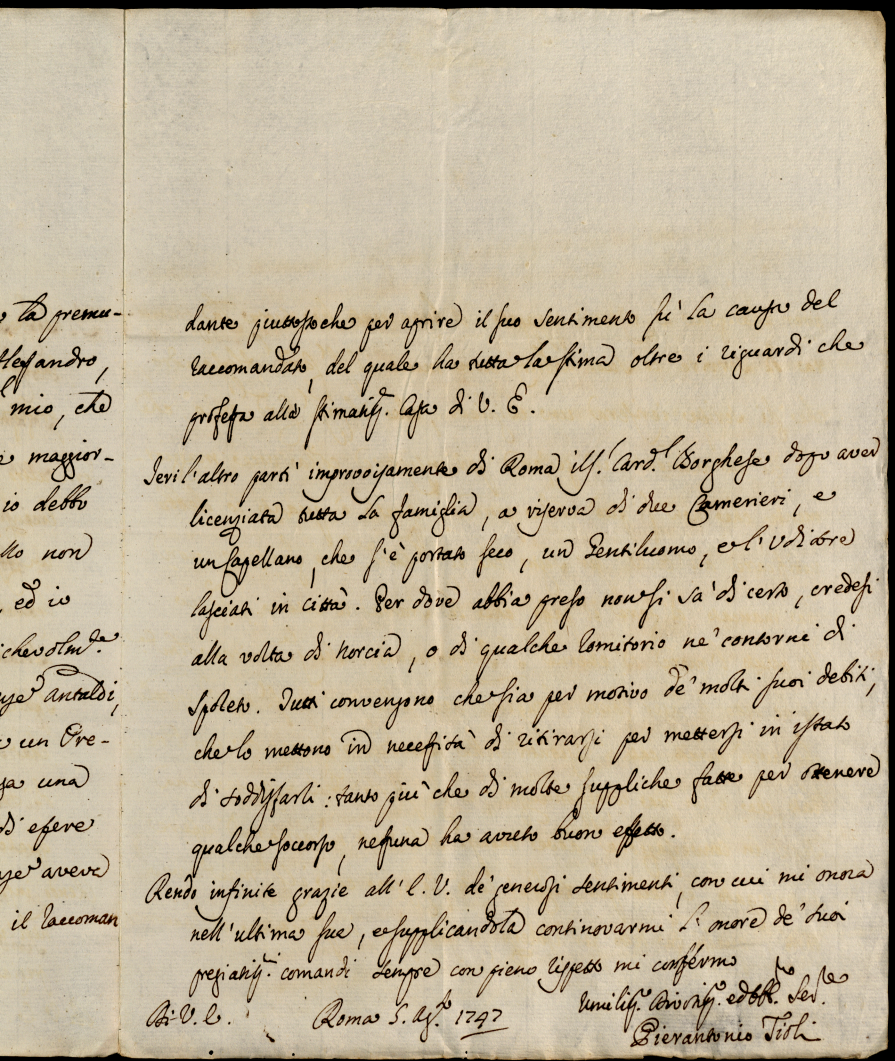 la premu-
lessandro,
mio, che
maggior-
io debbo
non
, ed io
ichevolm.te
Antaldi,
un Pre-
una
di essere
aveva
il Raccoman
dante piuttosto che per aprire il suo sentimento sù la causa del
Raccomandato, del quale ha tutta la stima oltre i riguardi che
professa alla stimatiss. Casa di V. E.
Ieri l'altro partì improvvisamente di Roma il S.r Card.l Borghese dopo aver
licenziata tutta la famiglia, a riserva di due Camerieri, e
un Capellano, che s'è portato seco, un Gentiluomo, e l'Uditore
lasciati in Città. Per dove abbia preso non si sà di certo, credesi
alla volta di Norcia, o di qualche Romitorio ne' contorni di
Spoleto. Tutti convengono che sia per motivo de' molti suoi debiti,
che lo mettono in necessità di ritirarsi per mettersi in istato
di soddisfarli: tanto più che di molte suppliche fatte per ottenere
qualche soccorso, nessuna ha avuto buon effetto.
Rendo infinite grazie all'E. V. de' generosi sentimenti, con cui mi onora
nell'ultima sua, e supplicandola continovarmi l'onore de' suoi
pregiatiss. comandi sempre con pieno rispetto mi confermo
Di V. E. Roma 5. Ag.to 1747
Umiliss. Divotiss. ed Obb.mo Ser.re
Pierantonio Tioli